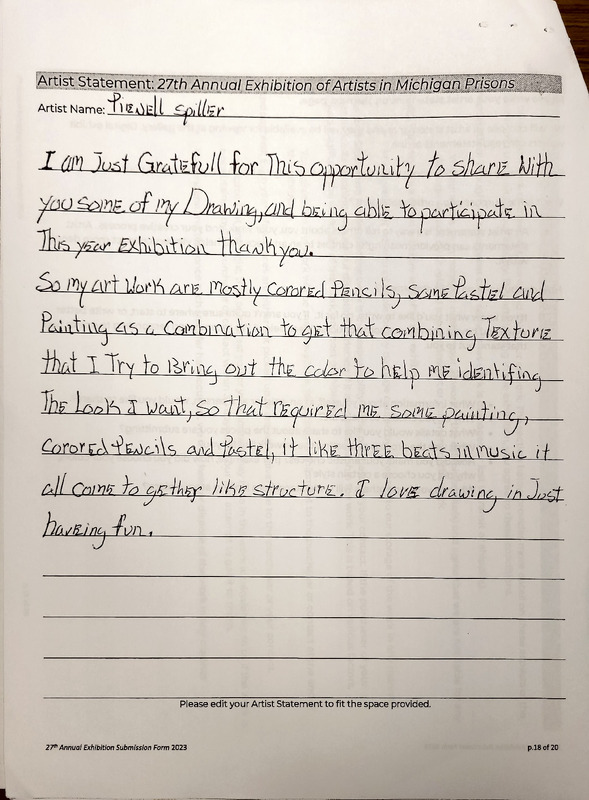 Artist Statement: 27th Annual Exhibition of Artists in Michigan Prisons
Artist Name: Pienell Spiller
I am Just Gratefull for This opportunity to share With
you some of my Drawing, and being able to participate in
This year Exhibition thank you.
So my art Work are mostly Corored Pencils, Some Pastel and
Painting as a Combination to get that combining Texture
that I Try to Bring out the color to help me identifing
The Look I want, So that required me some painting,
Corored Pencils and Pastel, it like three beats in music it
all come to gether like structure. I love drawing in Just
haveing fun.
Please edit your Artist Statement to fit the space provided.
27th Annual Exhibition Submission Form 2023
p.18 of 20